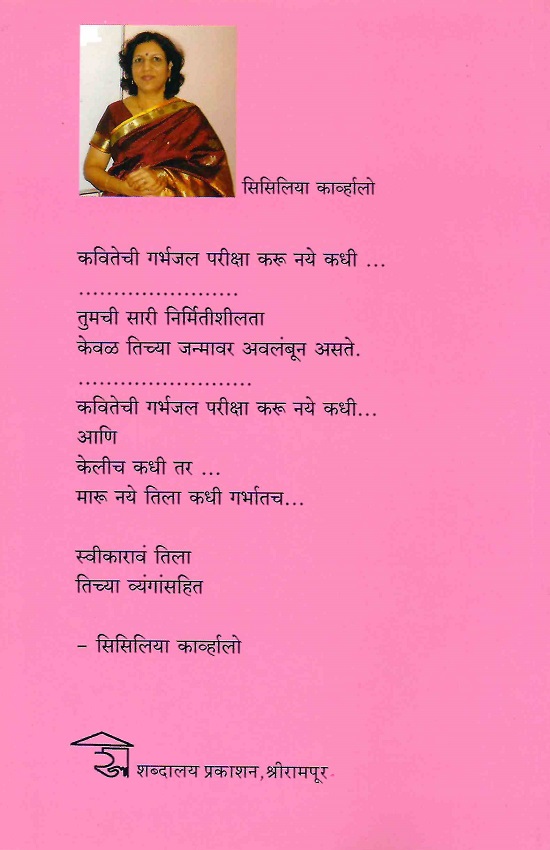 सिसिलिया कार्व्हालो
कवितेची गर्भजल परीक्षा करू नये कधी ...
.......................
तुमची सारी निर्मितीशीलता
केवळ तिच्या जन्मावर अवलंबून असते.
.........................
कवितेची गर्भजल परीक्षा करू नये कधी...
आणि
केलीच कधी तर ...
मारू नये तिला कधी गर्भातच...
स्वीकारावं तिला
तिच्या व्यंगांसहित
– सिसिलिया कार्व्हालो
शब्दालय प्रकाशन,श्रीरामपूर